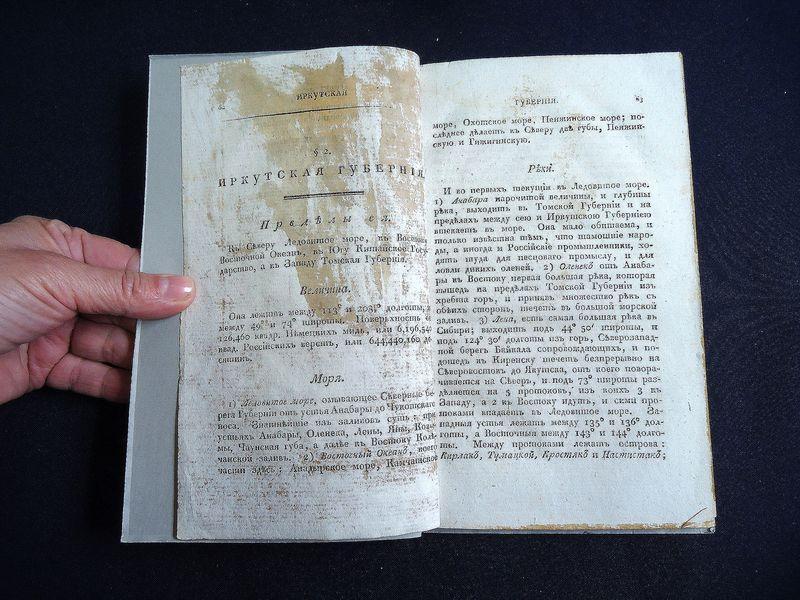 ИРКУТСКАЯ
§ 2.
ИРКУТСКАЯ ГУБЕРНІЯ
Предѣлы ея.
Къ Сѣверу Ледовитое море, къ Востоку
Восточной Океанъ, къ Югу Китайское Госу-
дарство, а къ Западу Томская Губернія.
Величина.
Она лежитъ между 113° и долготы, а
между 49° и 74° широты. Поверхность
126,460 квадр. Нѣмецкихъ миль, или 6,196,540
квад. Россійскихъ верстъ, или 644,440,160 де-
сятинъ.
Моря.
1) Ледовитое море, омывающее Сѣверные бе-
рега Губерніи отъ устья Анабары до Чукотскаго
носа. Знатнѣйшіе изъ заливовъ суть: при
устьяхъ Анабары, Оленека, Лены, Яны, Колы-
мы, Чаунская губа, а далѣе къ Востоку Колю-
чинской заливъ. 2) Восточный Океанъ, коего
части здѣсь: Анадырское море, Камчатское
ГУБЕРНІЯ. 83
море, Охотское море, Пенжинское море; по-
слѣднее дѣлаетъ къ Сѣверу двѣ губы, Пенжин-
скую и Гижигинскую.
Рѣки.
И во первыхъ текущія въ Ледовитое море.
1) Анабара нарочитой величины, и глубины
рѣка, выходитъ въ Томской Губерніи и на
предѣлахъ между сею и Иркутскою Губерніею
втекаетъ въ море. Она мало обитаема, и
только извѣстна тѣмъ, что тамошніе наро-
ды, а иногда и Россійскіе промышленники, хо-
дятъ туда для песцоваго промыслу, и для
ловли дикихъ оленей. 2) Оленекъ отъ Анаба-
ры къ Востоку первая большая рѣка, которая
вышедъ на предѣлахъ Томской Губерніи изъ
хребта горъ, и принявъ множество рѣкъ съ
обѣихъ сторонъ, течетъ въ большой морской
заливъ. 3) Лена, есть самая большая рѣка въ
Сибири; выходитъ подъ 44° 50′ широты, и
подъ 124° 30′ долготы изъ горъ, Сѣверозапад-
ной берегъ Байкала сопровождающихъ, и по-
дошедъ къ Киренску течетъ безпрерывно на
Сѣверовостокъ до Якутска, отъ коего повора-
чивается на Сѣверъ, и подъ 73° широты раз-
дѣляется на 5 протоковъ, изъ коихъ 3 къ
Западу, а 2 къ Востоку идутъ, и сими про-
токами впадаетъ въ Ледовитое море. За-
падныя устья лежатъ между 135° и 136° дол-
готы, а Восточныя между 143° и 144° долго-
ты. Между протоками лежатъ острова:
Кирлахъ, Тумацкой, Кростяхъ и Настистахъ;